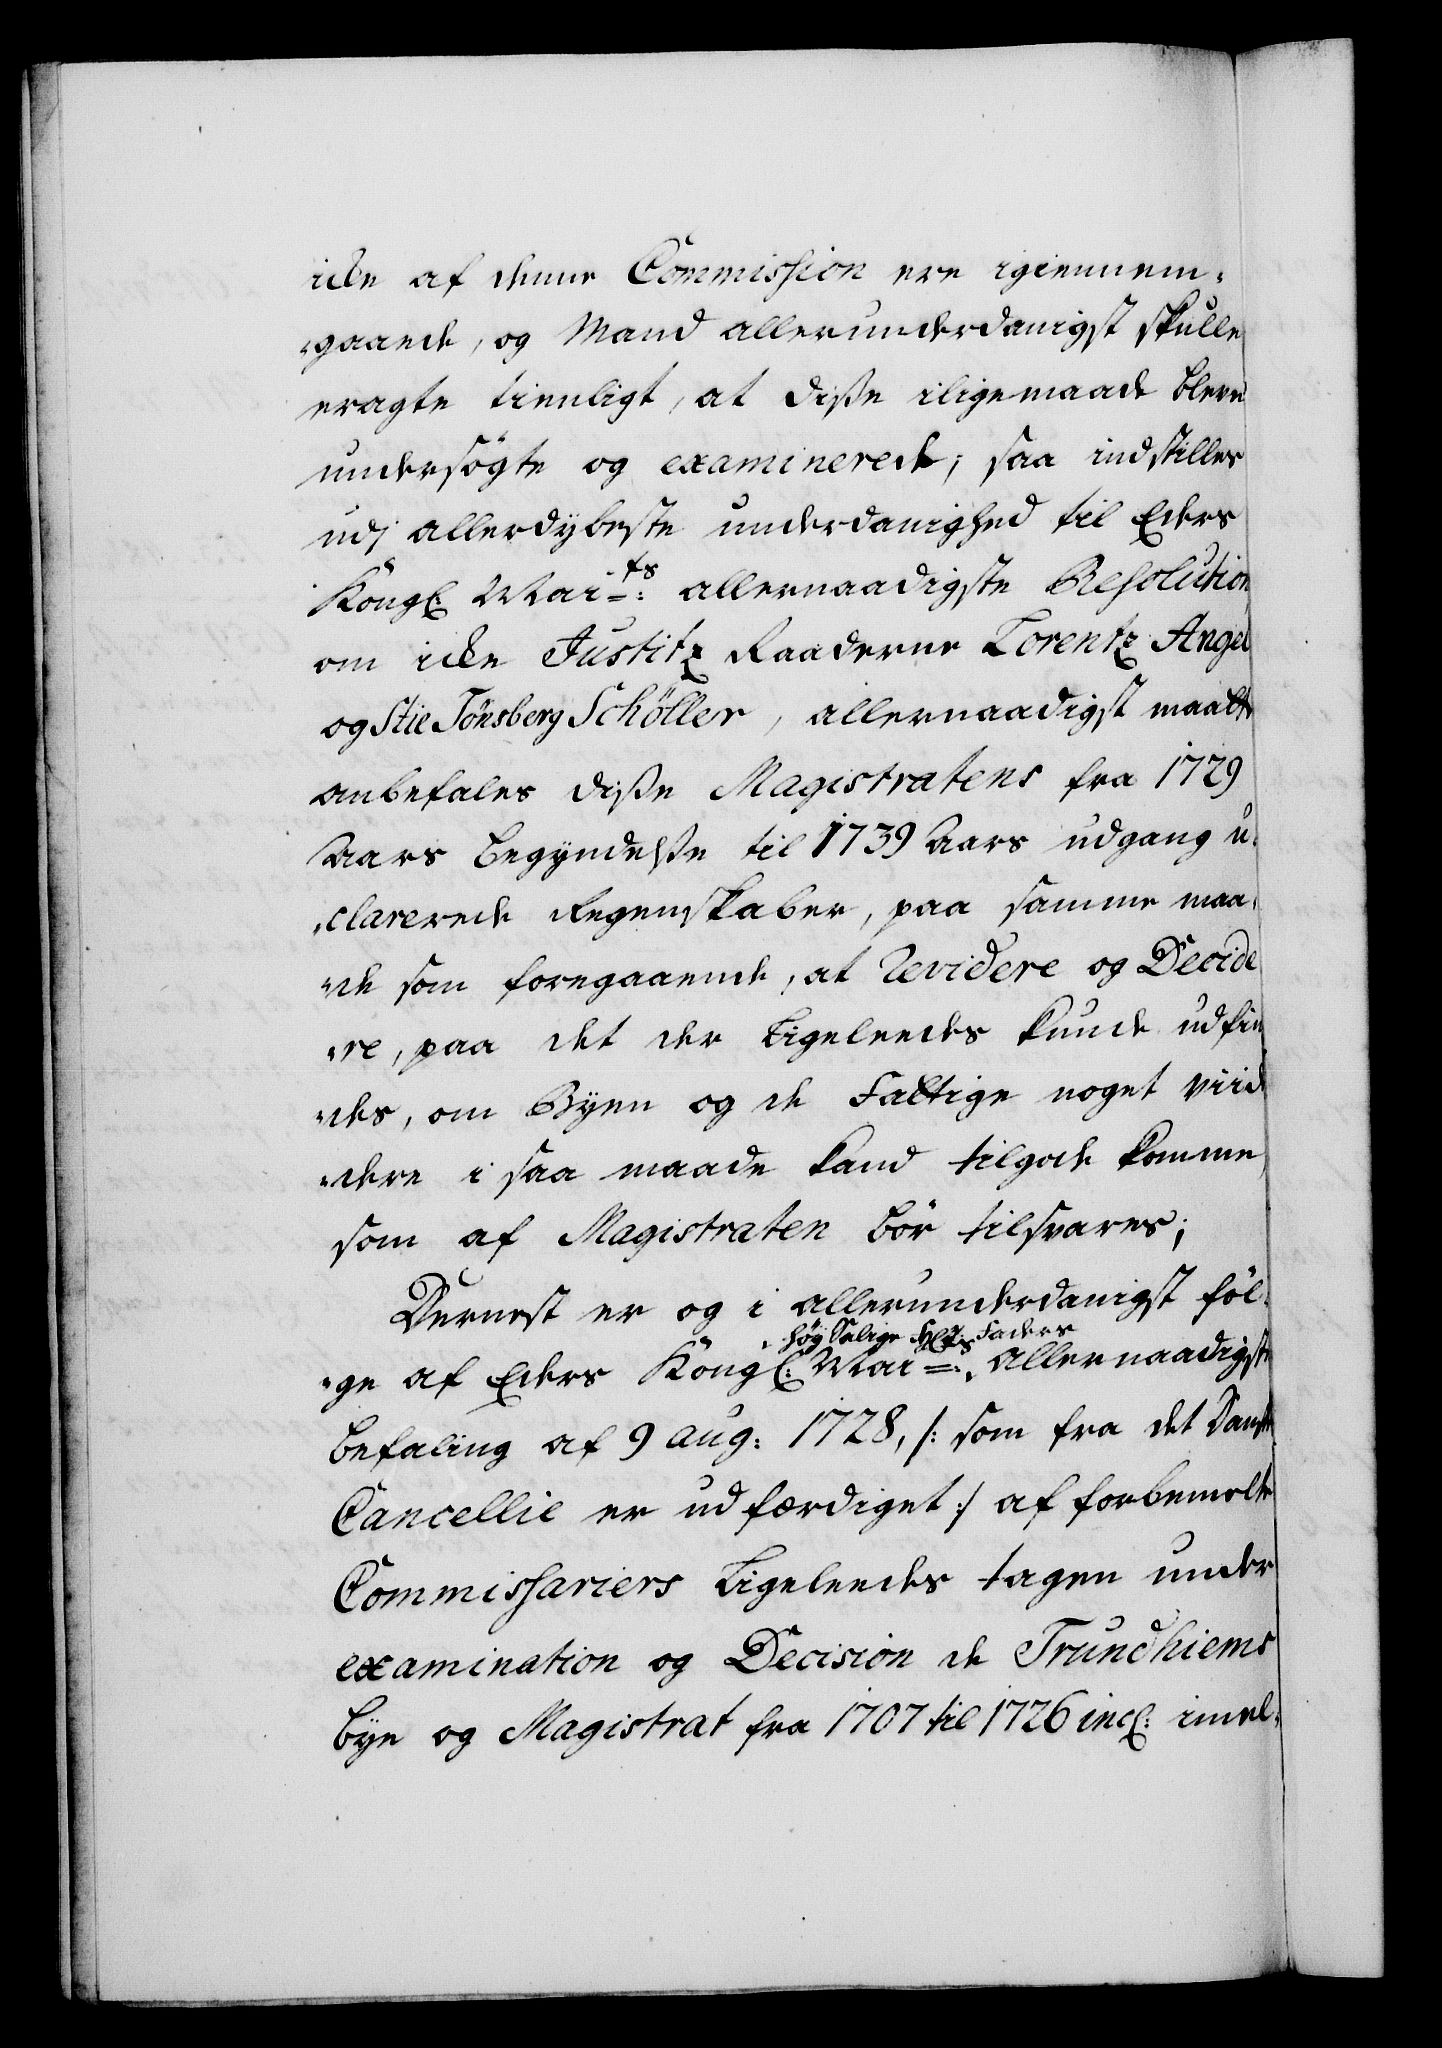 icke af denne Commission ere igiennem-
gaaede, og Mand allerunderdanigst skulle
eragte tienligt, at disse iligemaade bleve
undersögte og examinerede; saa indstilles
udj allerdybeste underdanighed til Eders
Kongl: Mai:ts allernaadigste Resolution
om icke Justitz Raaderne Lorentz Angel
og Stie Tönsberg Schöller, allernaadigst maatte
anbefales disse Magistratens fra 1729
Aars begyndelsse til 1739 Aars udgang u-
clarerede Regenskaber, paa samme maa-
de som foregaaende, at Revidere og Decide
re, paa det der Ligeleedes kunde udfin
des, om Byen og de Fattige noget viid
dere i saa maade kand tilgode komme,
som af Magistraten bör tilsvares;
Dernest er og i allerunderdanigst föl-
höy Salige Hr Faders
ge af Eders Kongl: Mai:ts allernaadigste
befaling af 9 aug: 1728, /: som fra det Danske
Cancellie er udfærdiget :/ af forbemelte
Commissariers Ligeleedes tagen under
examination og Decision de Trundhiems
bye og Magistrat fra 1707 til 1726 incl: imel-